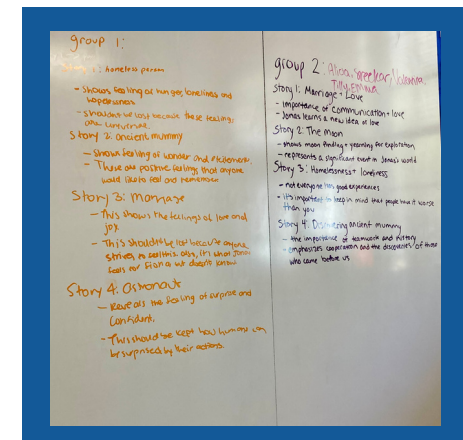 group 1:
Story 1: homeless person
- Shows feeling of hunger, loneliness and
hopelessness
- shouldnt be lost because these feelings
are
Story 2: ancient mummy
- Shows feeling of wonder and excitement
- These are positive feelings that anyone
would like to feel and remember
Story 3: Marriage
- This shows the feelings of love and
joy
- This should be lost because anyone
strives to feel this. also, it's what Jonas
feels for Fiona but doesn't know
Story 4: Astronaut
- Reveals the feeling of surprise and
Confident.
- This should be kept how humans can
be surprised by their actions.
group 2:
Tilly, Emma
Story 1: Marriage + Love
- importance of communication + love
- Jonas learns a new idea of love
Story 2: The moon
- shows moon finding + yearning for exploration
- represents a significant event in Jonas's world
Story 3: Homelessness + loneliness
- not everyone has good experiences
- it's important to keep in mind that people have it worse
than you
Story 4: Discovering ancient mummy
- the importance of teamwork and history
- emphasizes cooperation and the discoveries of those
who came before us